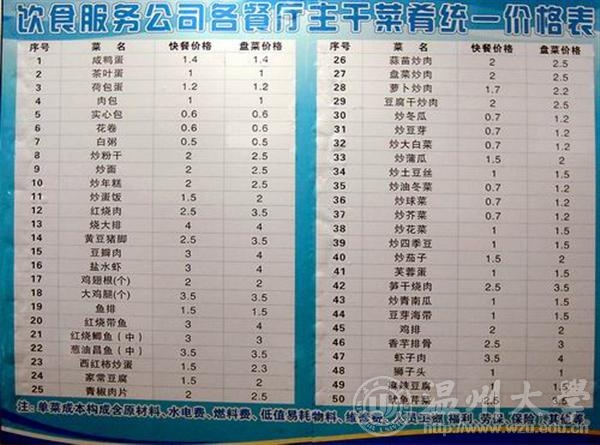 饮食服务公司各餐厅主干菜肴统一价格表
序号 菜 名 快餐价格 盘菜价格
1 咸鸭蛋 1.4 1.4
2 茶叶蛋 1 1
3 荷包蛋 1.2 1.2
4 肉包 1 1
5 实心包 0.6 0.6
6 花卷 0.6 0.6
7 白粥 0.5 0.5
8 炒粉干 2 2.5
9 炒面 2 2.5
10 炒年糕 2 2.5
11 炒蛋饭 1.5 2
12 红烧肉 2.5 3.5
13 烧大排 4 4
14 黄豆猪脚 2.5 3.5
15 豆瓣肉 3 4
16 盐水虾 3 4
17 鸡翅根(个) 2 2
18 大鸡腿(个) 3.5 3.5
19 鱼排 1.5 2
20 红烧带鱼 3 4
21 红烧鲫鱼(中) 3 4
22 葱油昌鱼(中) 3.5 4
23 西红柿炒蛋 1.5 2.5
24 家常豆腐 1.5 2
25 青椒肉片 2 2.5
序号 菜 名 快餐价格 盘菜价格
26 蒜苗炒肉 2 2.5
27 盘菜炒肉 2 2.5
28 萝卜炒肉 1.7 2.2
29 豆腐干炒肉 2 2.5
30 炒冬瓜 0.7 1.2
31 炒豆芽 0.7 1.2
32 炒大白菜 0.7 1.2
33 炒蒲瓜 1.5 2
34 炒土豆丝 1 1.5
35 炒油冬菜 0.7 1.2
36 炒球菜 0.7 1.2
37 炒芥菜 0.7 1.2
38 炒花菜 1 1.5
39 炒四季豆 1 1.5
40 炒茄子 1.5 2
41 芙蓉蛋 1 1.5
42 笋干烧肉 2.5 3.5
43 炒青南瓜 1 1.5
44 豆芽海带 1 1.5
45 鸡排 2 2
46 香芋排骨 2.5 3
47 虾子肉 3.5 4
48 狮子头 1
49 麻辣豆腐 1.5
50 鱿鱼芹菜 2.5 3.5
注: 单菜成本构成含原材料、水电费、燃料费、低值易耗物料、维修费、人员工资(福利、劳保、保险)及其他等
温州大学
www.wzu.edu.cn